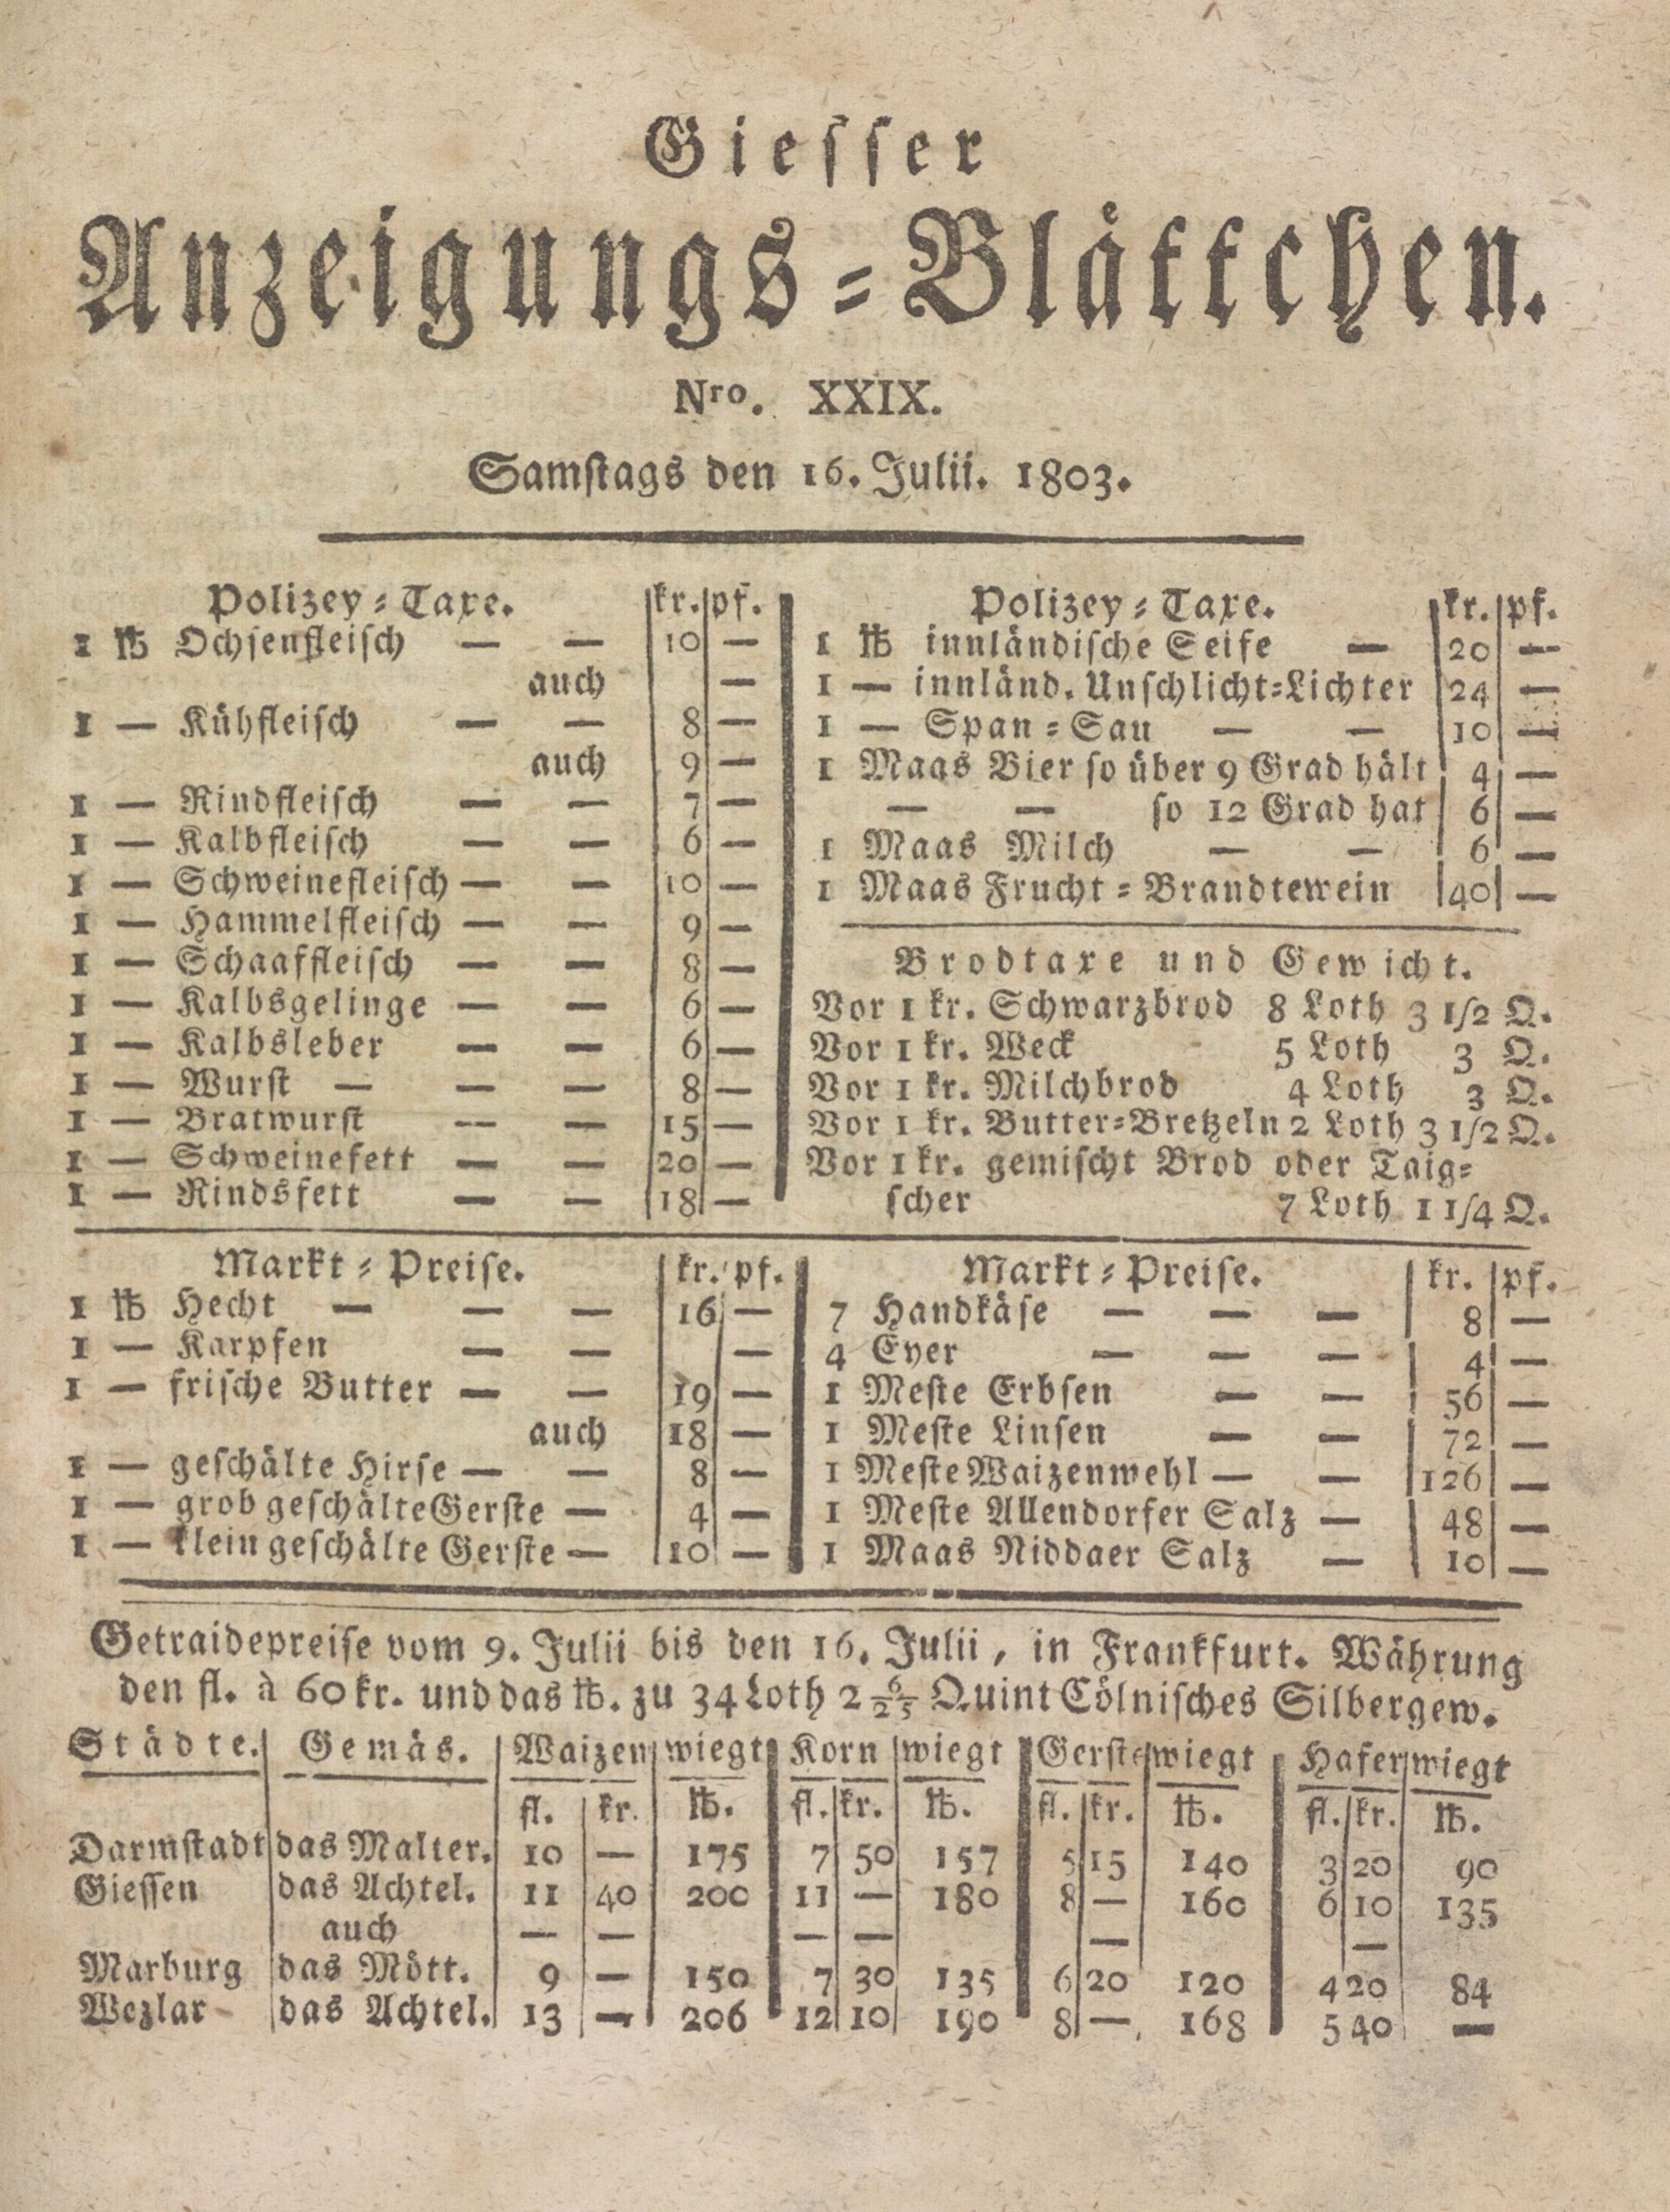 Giesser
Anzeigungs-Blättchen.
Nro. XXIX.
Samstags den 16. Julii. 1803.
Polizey-Taxe. kr. pf.
1 ℔ Ochsenfleisch — — 10 —
auch —
1 — Kühfleisch — — 8 —
auch 9 —
1 — Rindfleisch — — 7 —
1 — Kalbfleisch — — 6 —
1 — Schweinefleisch — — 10 —
1 — Hammelfleisch — — 9 —
1 — Schaaffleisch — — 8 —
1 — Kalbsgelinge — — 6 —
1 — Kalbsleber — — 6 —
1 — Wurst — — — 8 —
1 — Bratwurst — — 15 —
1 — Schweinefett — — 20 —
1 — Rindsfett — — 18 —
Polizey-Taxe. kr. pf.
1 ℔ innländische Seife — 20 —
1 — innländ. Unschlicht-Lichter 24 —
1 — Span-Sau — — 10 —
1 Maas Bier so über 9 Grad hält 4 —
— — so 12 Grad hat 6 —
1 Maas Milch — — 6 —
1 Maas Frucht-Brandtewein 40 —
Brodtaxe und Gewicht.
Vor 1 kr. Schwarzbrod 8 Loth 3 1/2 Q.
Vor 1 kr. Weck 5 Loth 3 Q.
Vor 1 kr. Milchbrod 4 Loth 3 Q.
Vor 1 kr. Butter-Bretzeln 2 Loth 3 1/2 Q.
Vor 1 kr. gemischt Brod oder Taig-
scher 7 Loth 1 1/4 Q.
Markt-Preise. kr. pf.
1 ℔ Hecht — — — 16 —
1 — Karpfen — — —
1 — frische Butter — — 19 —
auch 18 —
1 — geschälte Hirse — — 8 —
1 — grob geschälte Gerste — 4 —
1 — klein geschälte Gerste — 10 —
Markt-Preise. kr. pf.
7 Handkäse — — — 8 —
4 Eyer — — — 4 —
1 Meste Erbsen — — 56 —
1 Meste Linsen — — 72 —
1 Meste Waizenwehl — — 126 —
1 Meste Allendorfer Salz — 48 —
1 Maas Niddaer Salz — 10 —
Getraidepreise vom 9. Julii bis den 16. Julii, in Frankfurt. Währung
den fl. à 60 kr. und das ℔. zu 34 Loth 2 6/25 Quint Cölnisches Silbergew.
Städte. Gemäs. Waizen wiegt Korn wiegt Gerste wiegt Hafer wiegt
fl. kr. ℔. fl. kr. ℔. fl. kr. ℔. fl. kr. ℔.
Darmstadt das Malter. 10 — 175 7 50 157 5 15 140 3 20 90
Giessen das Achtel. 11 40 200 11 — 180 8 — 160 6 10 135
auch — — — — — —
Marburg das Mött. 9 — 150 7 30 135 6 20 120 4 20 84
Wezlar das Achtel. 13 — 206 12 10 190 8 — 168 5 40 —